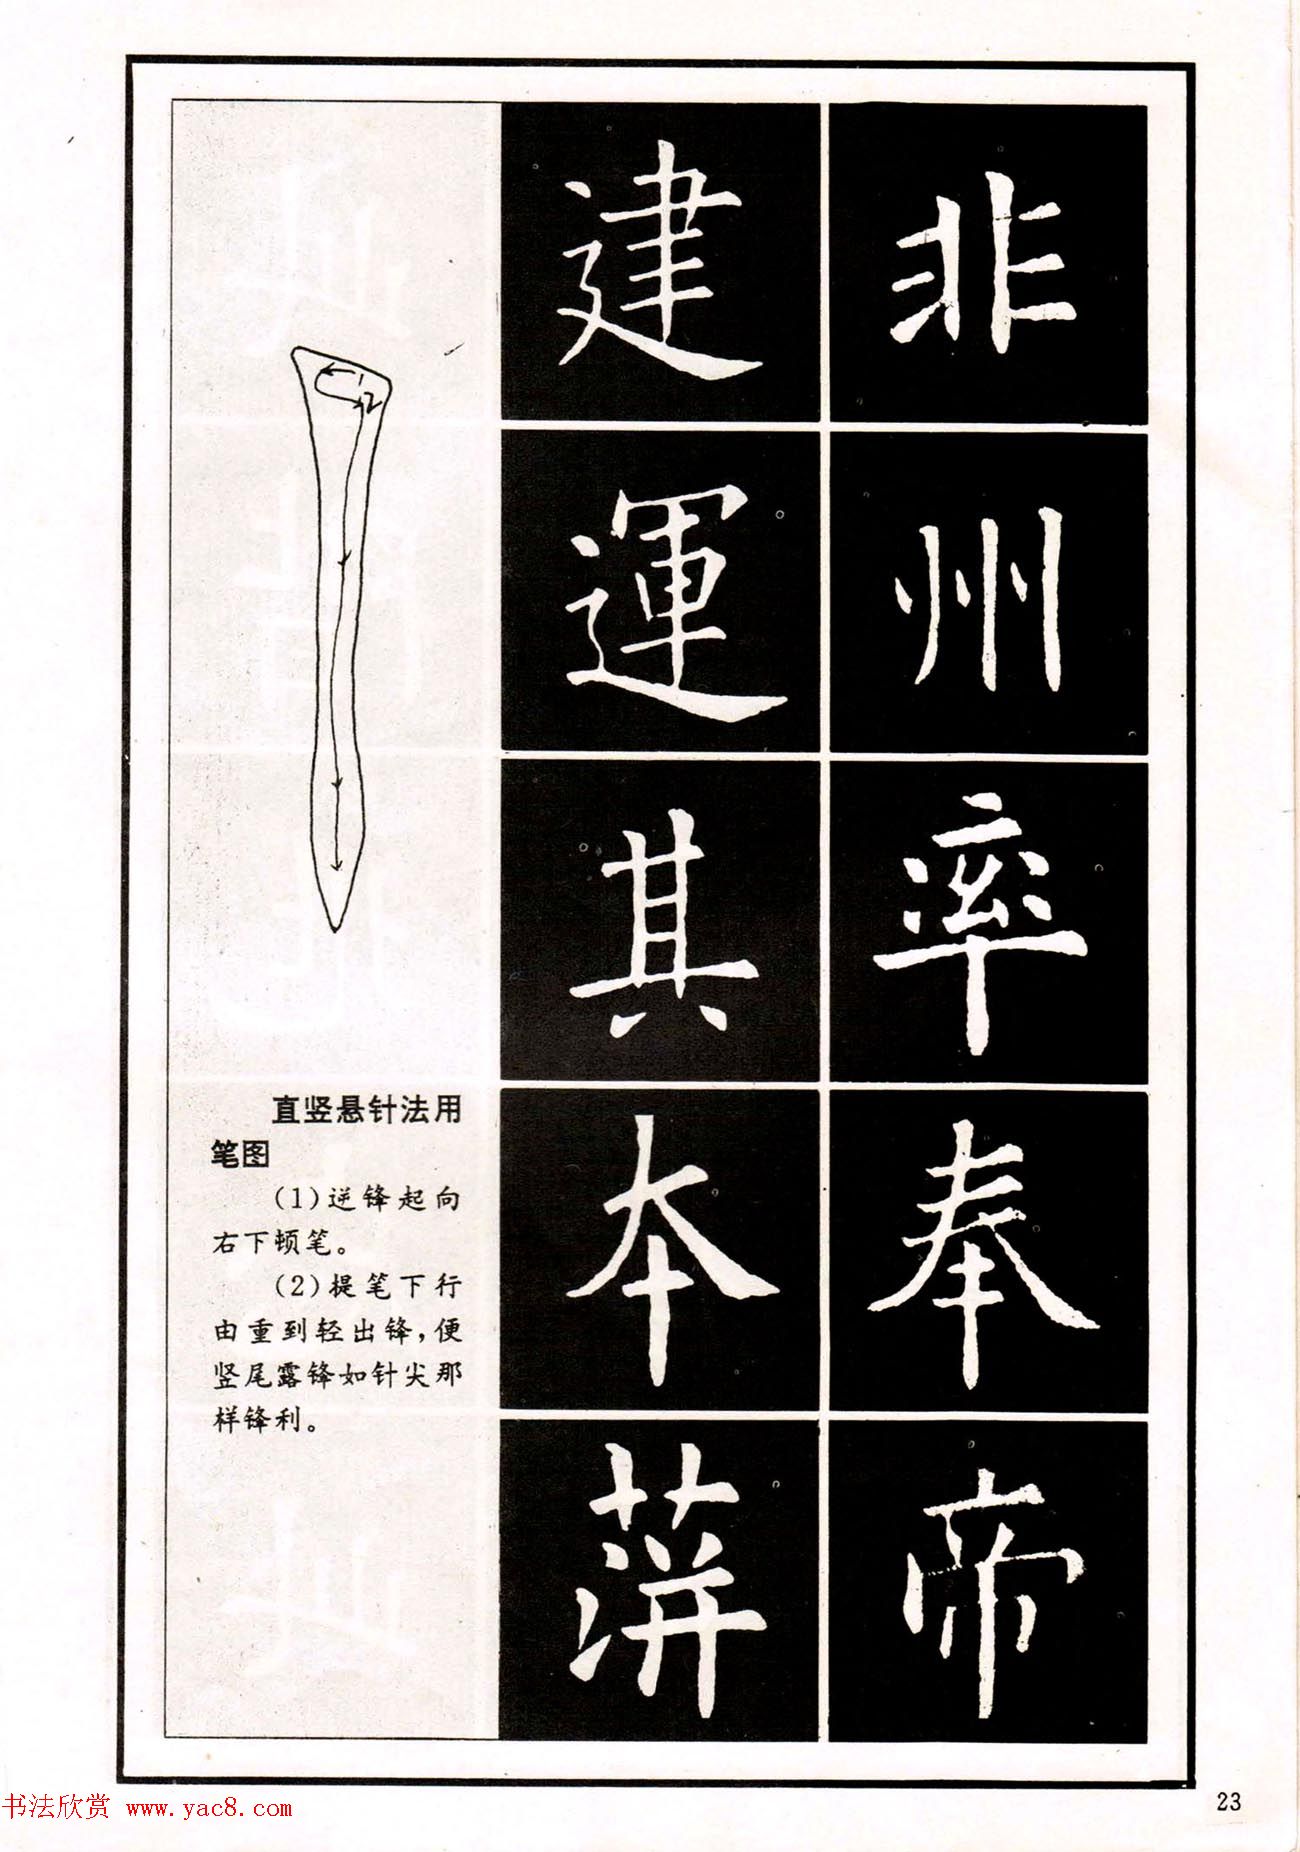 非
州
率
奉
帝
建
運
其
本
蓱
1
2
直竖悬针法用
笔图
(1)逆锋起向
右下顿笔。
(2)提笔下行
由重到轻出锋，便
竖尾露锋如针尖那
样锋利。
23
书法欣赏 www.yac8.com